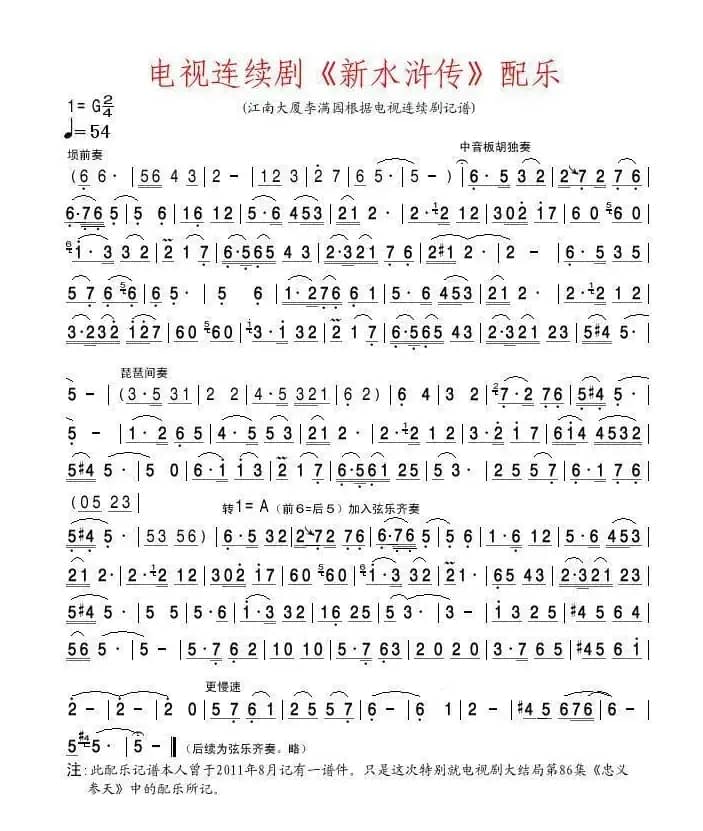 电视连续剧《新水浒传》配乐
1=G 2/4
(江南大厦李满园根据电视连续剧记谱)
♩=54
埙前奏
中音板胡独奏
(6 6· |56 4 3 |2 - |12 3 |2 7 |6 5· |5 -) |6· 5 3 2 |2 7 2 7 6 |
6·76 5 |5 6 |16 12 |5·6 453 |21 2· |2·12 12 |302 17 |60 560 |
61· 3 32 |2 1 7 |6·565 4 3 |2·321 76 |2#1 2· |2 - |6· 5 35 |
5 7 6 56 |6 5· |5 6 |1·276 6 1 |5·6 453 |21 2· |2·12 12 |
3·232 127 |60 560 |3·1 32 |2 1 7 |6·565 43 |2·321 23 |5#4 5· |
琵琶间奏
5 - |(3·5 31 |2 2 |4·5 321 |6 2) |6 4 |3 2 |27·2 76 |5#4 5· |
5 - |1· 2 6 5 |4· 5 5 3 |03 2· |2·12 12 |3·2 1 7 |614 4532 |
5#4 5· |5 0 |6·1 13 |2 1 7 |6·561 25 |5 3· |2 5 7 5 |6·1 76 |
(05 23
转1=A (前6=后5)加入弦乐齐奏
5#4 5· |53 56) |6·5 32 |2 72 76 |6·76 5 |5 6 |1·6 12 |5·6 453 |
21 2· |2·12 12 |302 17 |60 560 |61·3 32 |21· |65 43 |2·321 23 |
5#4 5· |5 5 |5·6 |1·3 32 |16 25 |5 3· |3 - |1·2 |#4 5 6 4 |
565 5· |5 - |5·7 62 |10 10 |5·7 63 |20 20 |3·7 65 |#45 61 |
更慢速
2 - |2 - |2 0 |5 7 6 1 |2 - |6 - |6 1 |2 - |#45 676 |6 - |
5#45· |5 - ‖ (后续为弦乐齐奏。略)
注:此配乐记谱本人曾于2011年8月记有一谱件。只是这次特别就电视剧大结局第86集《忠义
参天》中的配乐所记。